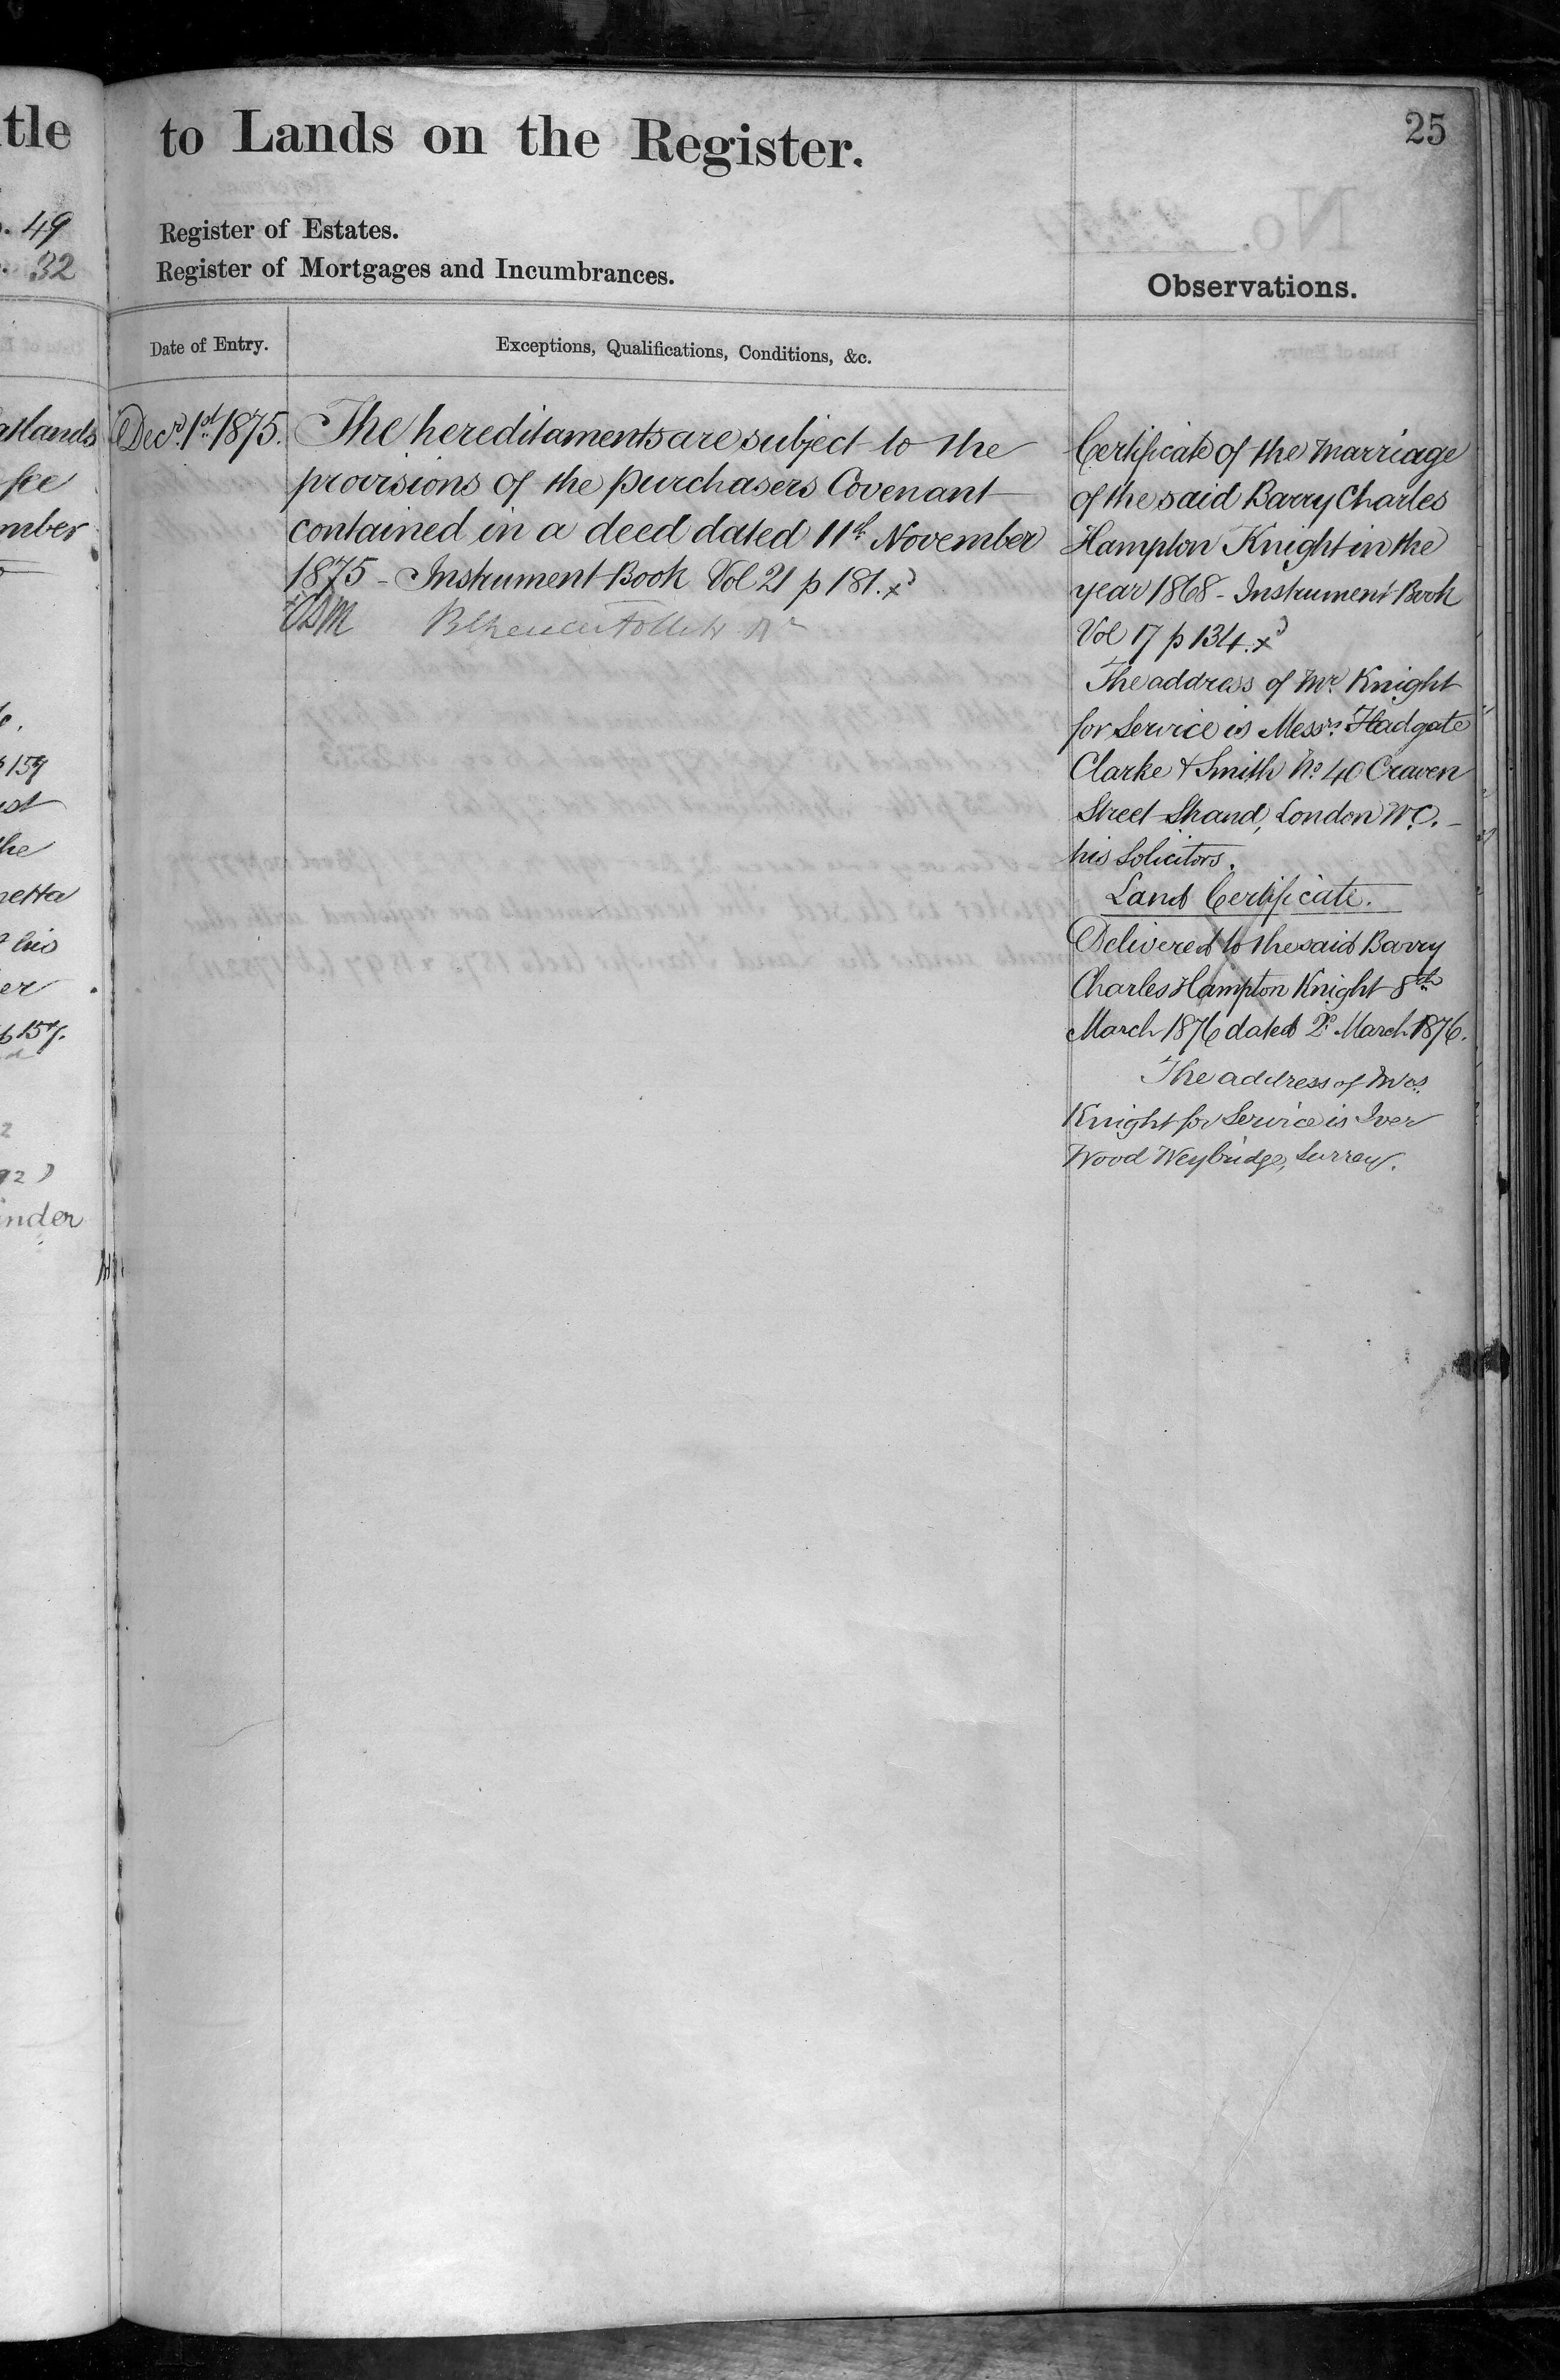 tle
. 49
. 32
atlands
fee
mber
159
he
netta
his
er
157.
inder
to Lands on the Register.
25
Register of Estates.
Register of Mortgages and Incumbrances.
Observations.
Date of Entry.
Exceptions, Qualifications, Conditions, &c.
Decr. 1st 1875.
The hereditaments are subject to the
provisions of the purchasers Covenant
contained in a deed dated 11th November
1875 - Instrument Book Vol 21 p 181.
Certificate of the marriage
of the said Barry Charles
Hampton Knight in the
year 1868 - Instrument Book
Vol 17 p 134.
The address of Mr. Knight
for Service is Messrs. Fladgate
Clarke & Smith No. 40 Craven
Street Strand, London W.C. -
his Solicitors.
Land Certificate.
Delivered to the said Barry
Charles Hampton Knight 8th
March 1876 dated 2d March 1876.
The address of Mrs.
Knight for Service is Iver
Wood Weybridge, Surrey.